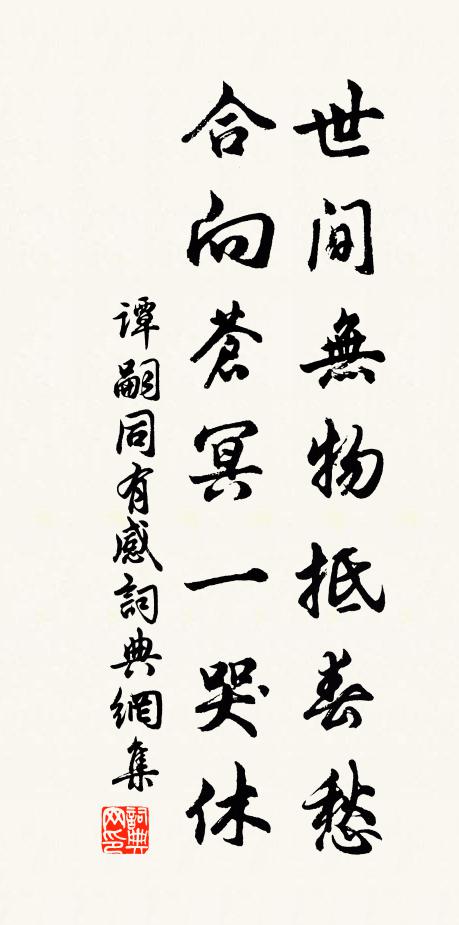 世間無物抵春愁
合向蒼冥一哭休
譚嗣同有感詞典網集
詞典網印